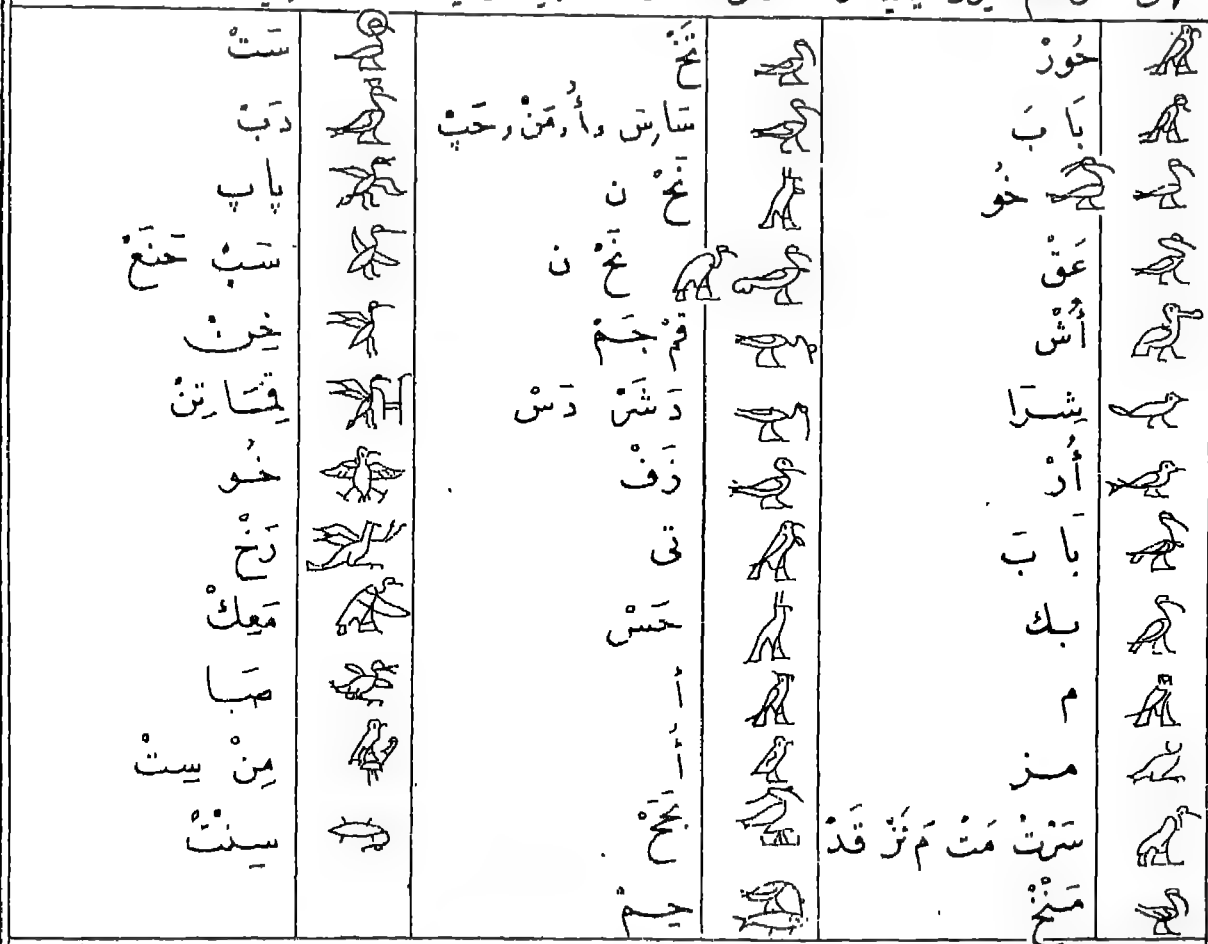 حُورْ
بَا بَ
خُو
عَقْ
أُشْ
شِرَا
أُرْ
بَا بَ
بك
م
مز
سَرْتْ مَتْ مَ نَرْ قَدْ
مَنْخْ
نَخْ
سَارِسَ ,أُ,مَنْ,حَپْ
نَحْ ن
نَخْ ن
قَمْ جَمْ
دَشَرْ دَسْ
زَفْ
تى
حَسْ
أَ
أُ
حِمْ
سَتْ
دَبْ
پاپ
سَبْ حَنَعْ
قِمَا تِنْ
خُو
رَخْ
مَعِكْ
صَبَا
مِنْ سِتْ
سِنْتْ